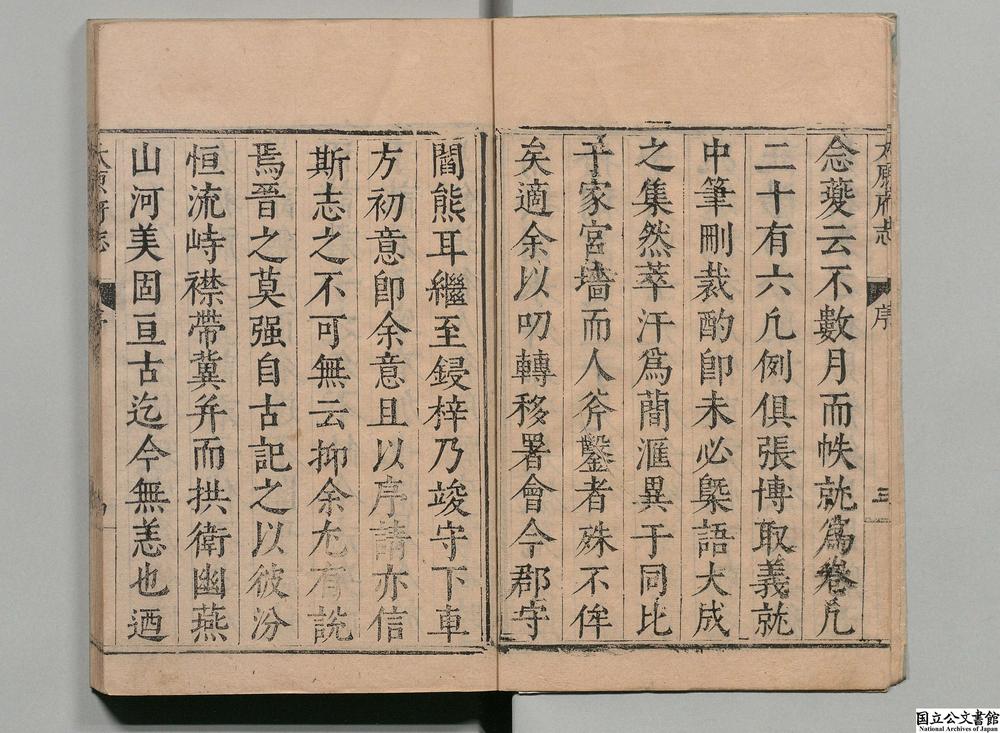 太原府志
序
三
念變云不數月而帙就為卷凡
二十有六凡例俱張博取義就
中筆刪裁酌即未必槩語大成
之集然萃汗為蕳滙異于同比
千家宮墻而人斧鑿者殊不侔
矣適余以叨轉移署會今郡守
閻熊耳繼至鋟梓乃竣守下車
方初意即余意且以序請亦信
斯志之不可無云抑余尤有說
焉晉之莫强自古記之以彼汾
恒流峙襟帶冀并而拱衛幽燕
山河美固亘古迄今無恙也迺
太原府志
序
国立公文書館
National Archives of Japan